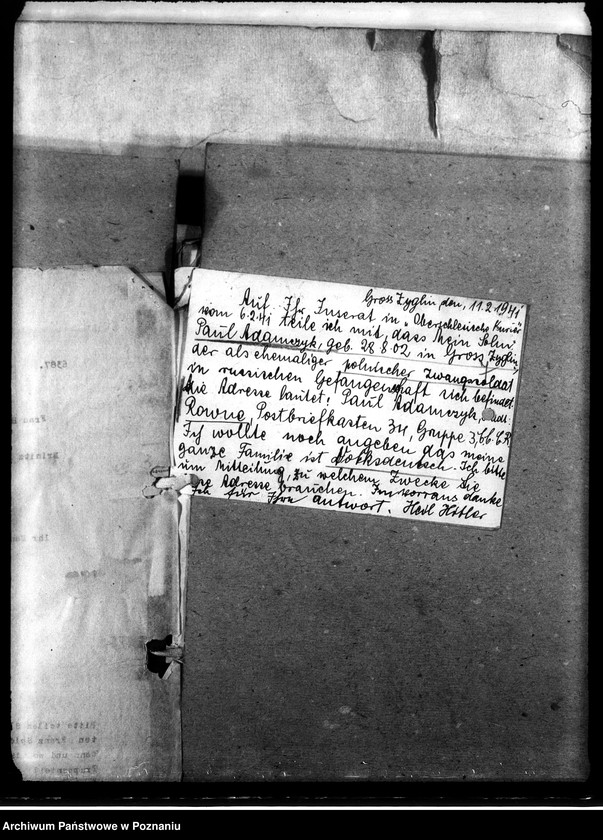 Gross Zyglin den, 11.2.1941
Auf Ihr Inserat in „Oberschlesische Kurier"
vom 6.2.41 teile ich mit, dass Mein Sohn
Paul Adamczyk, geb. 28.8.02 in Gross Zyglin,
der als ehemaliger polnischer Zwangssoldat
in russischen Gefangenschaft sich befindet.
die Adresse lautet! Paul Adamczyk,
Rowne, Postbriefkasten 34, Gruppe 3,
Ich wollte noch angeben das meine
ganze Familie ist Volksdeutsch. Ich bitte
um Mitteilung, zu welchem Zwecke Sie
Adresse brauchen. Im worraus danke
Ich für Ihre antwort. Heil Hitler
6387.
Frau
Ihr
Bitte
Archiwum Państwowe w Poznaniu